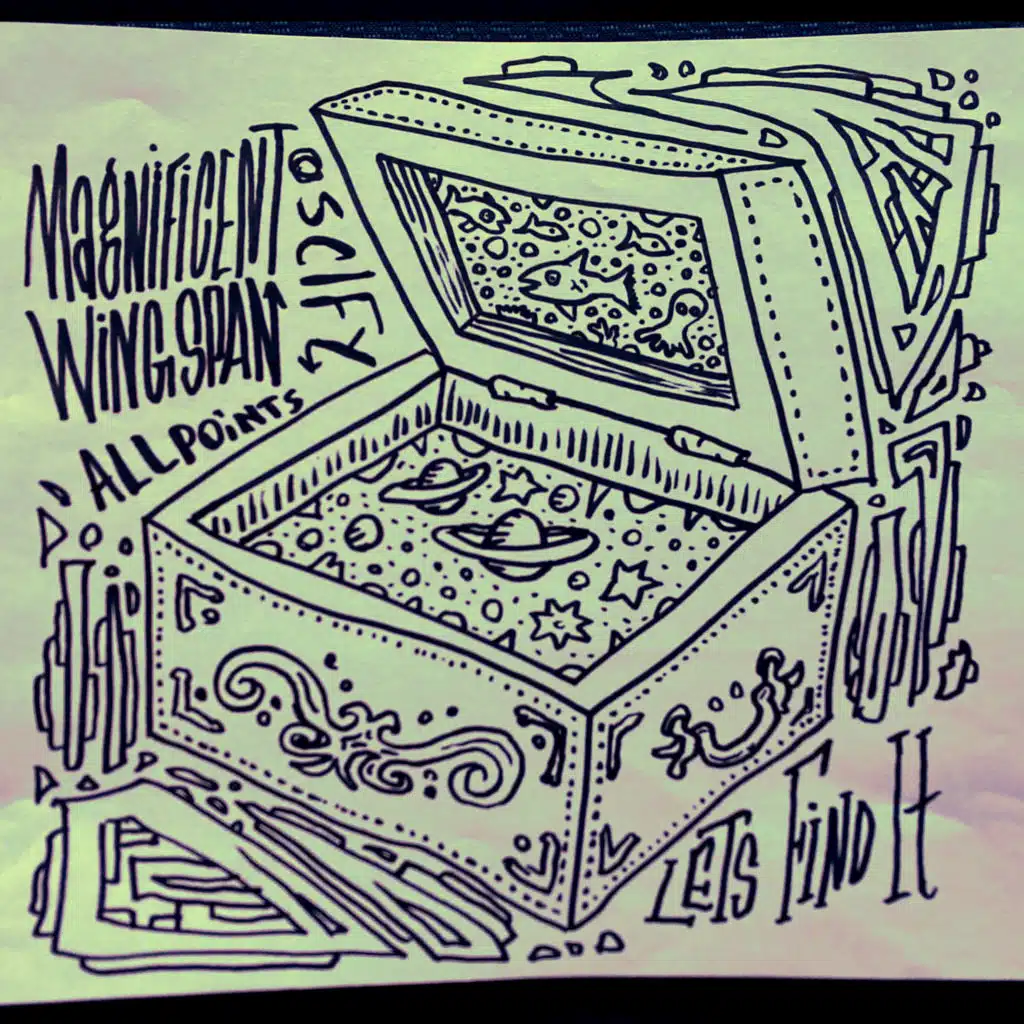 MAGNIFICENT
WINGSPAN
ALL POINTS
OSCIFY
LETS FIND IT